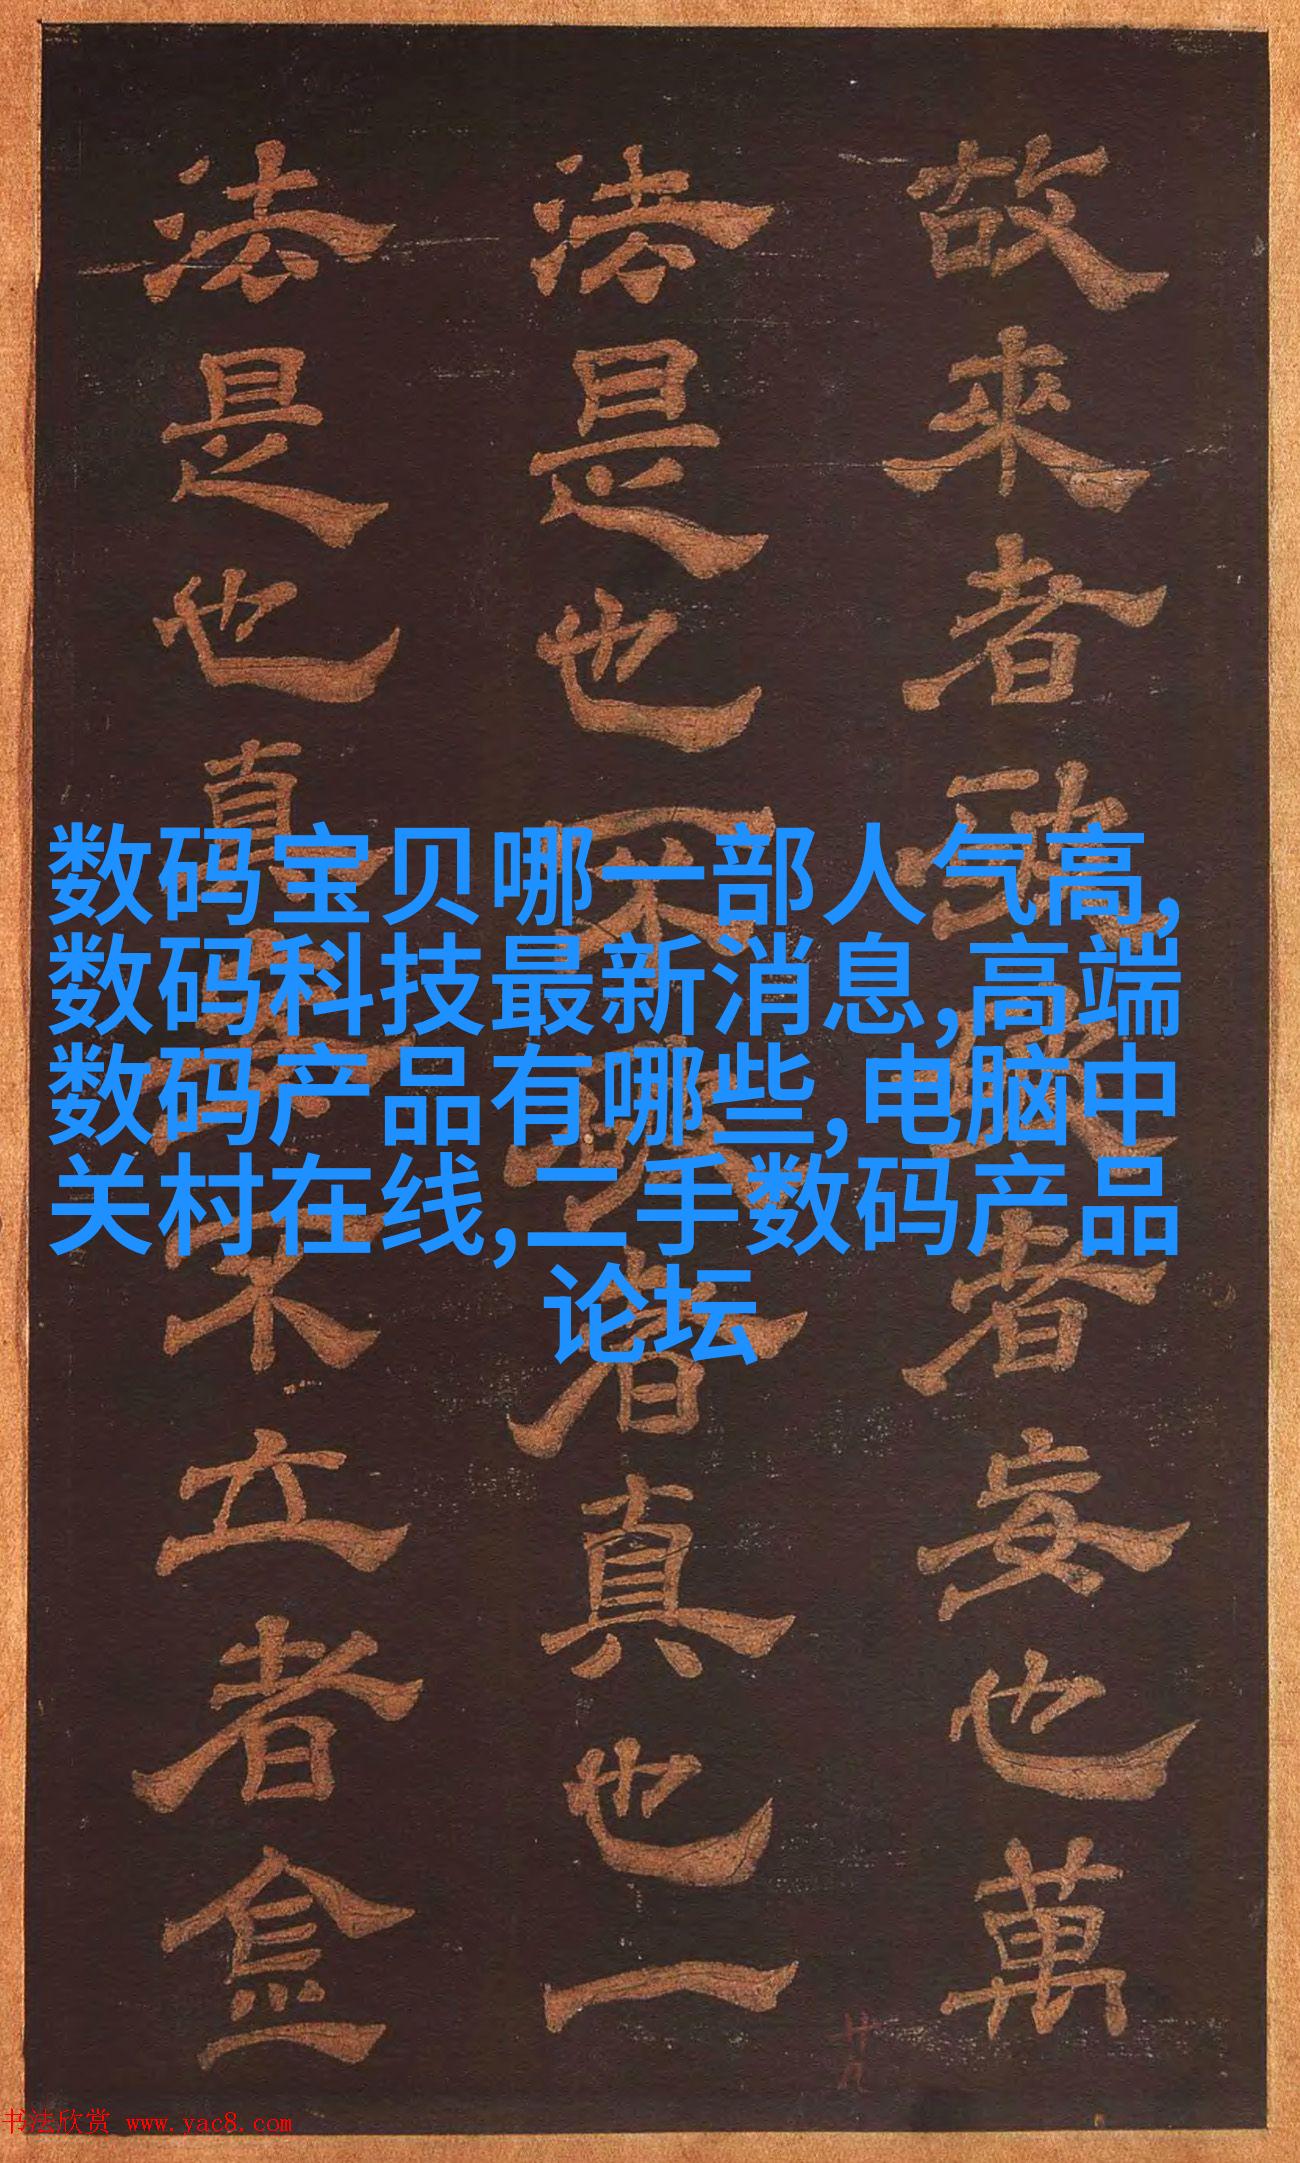 故來者者妄也萬
法是也不者真也一
法是也真不立者
数码宝贝哪一部人气高,
数码科技最新消息,高端
数码产品有哪些,电脑中
关村在线,二手数码产品
论坛
书法欣赏 www.yac8.com